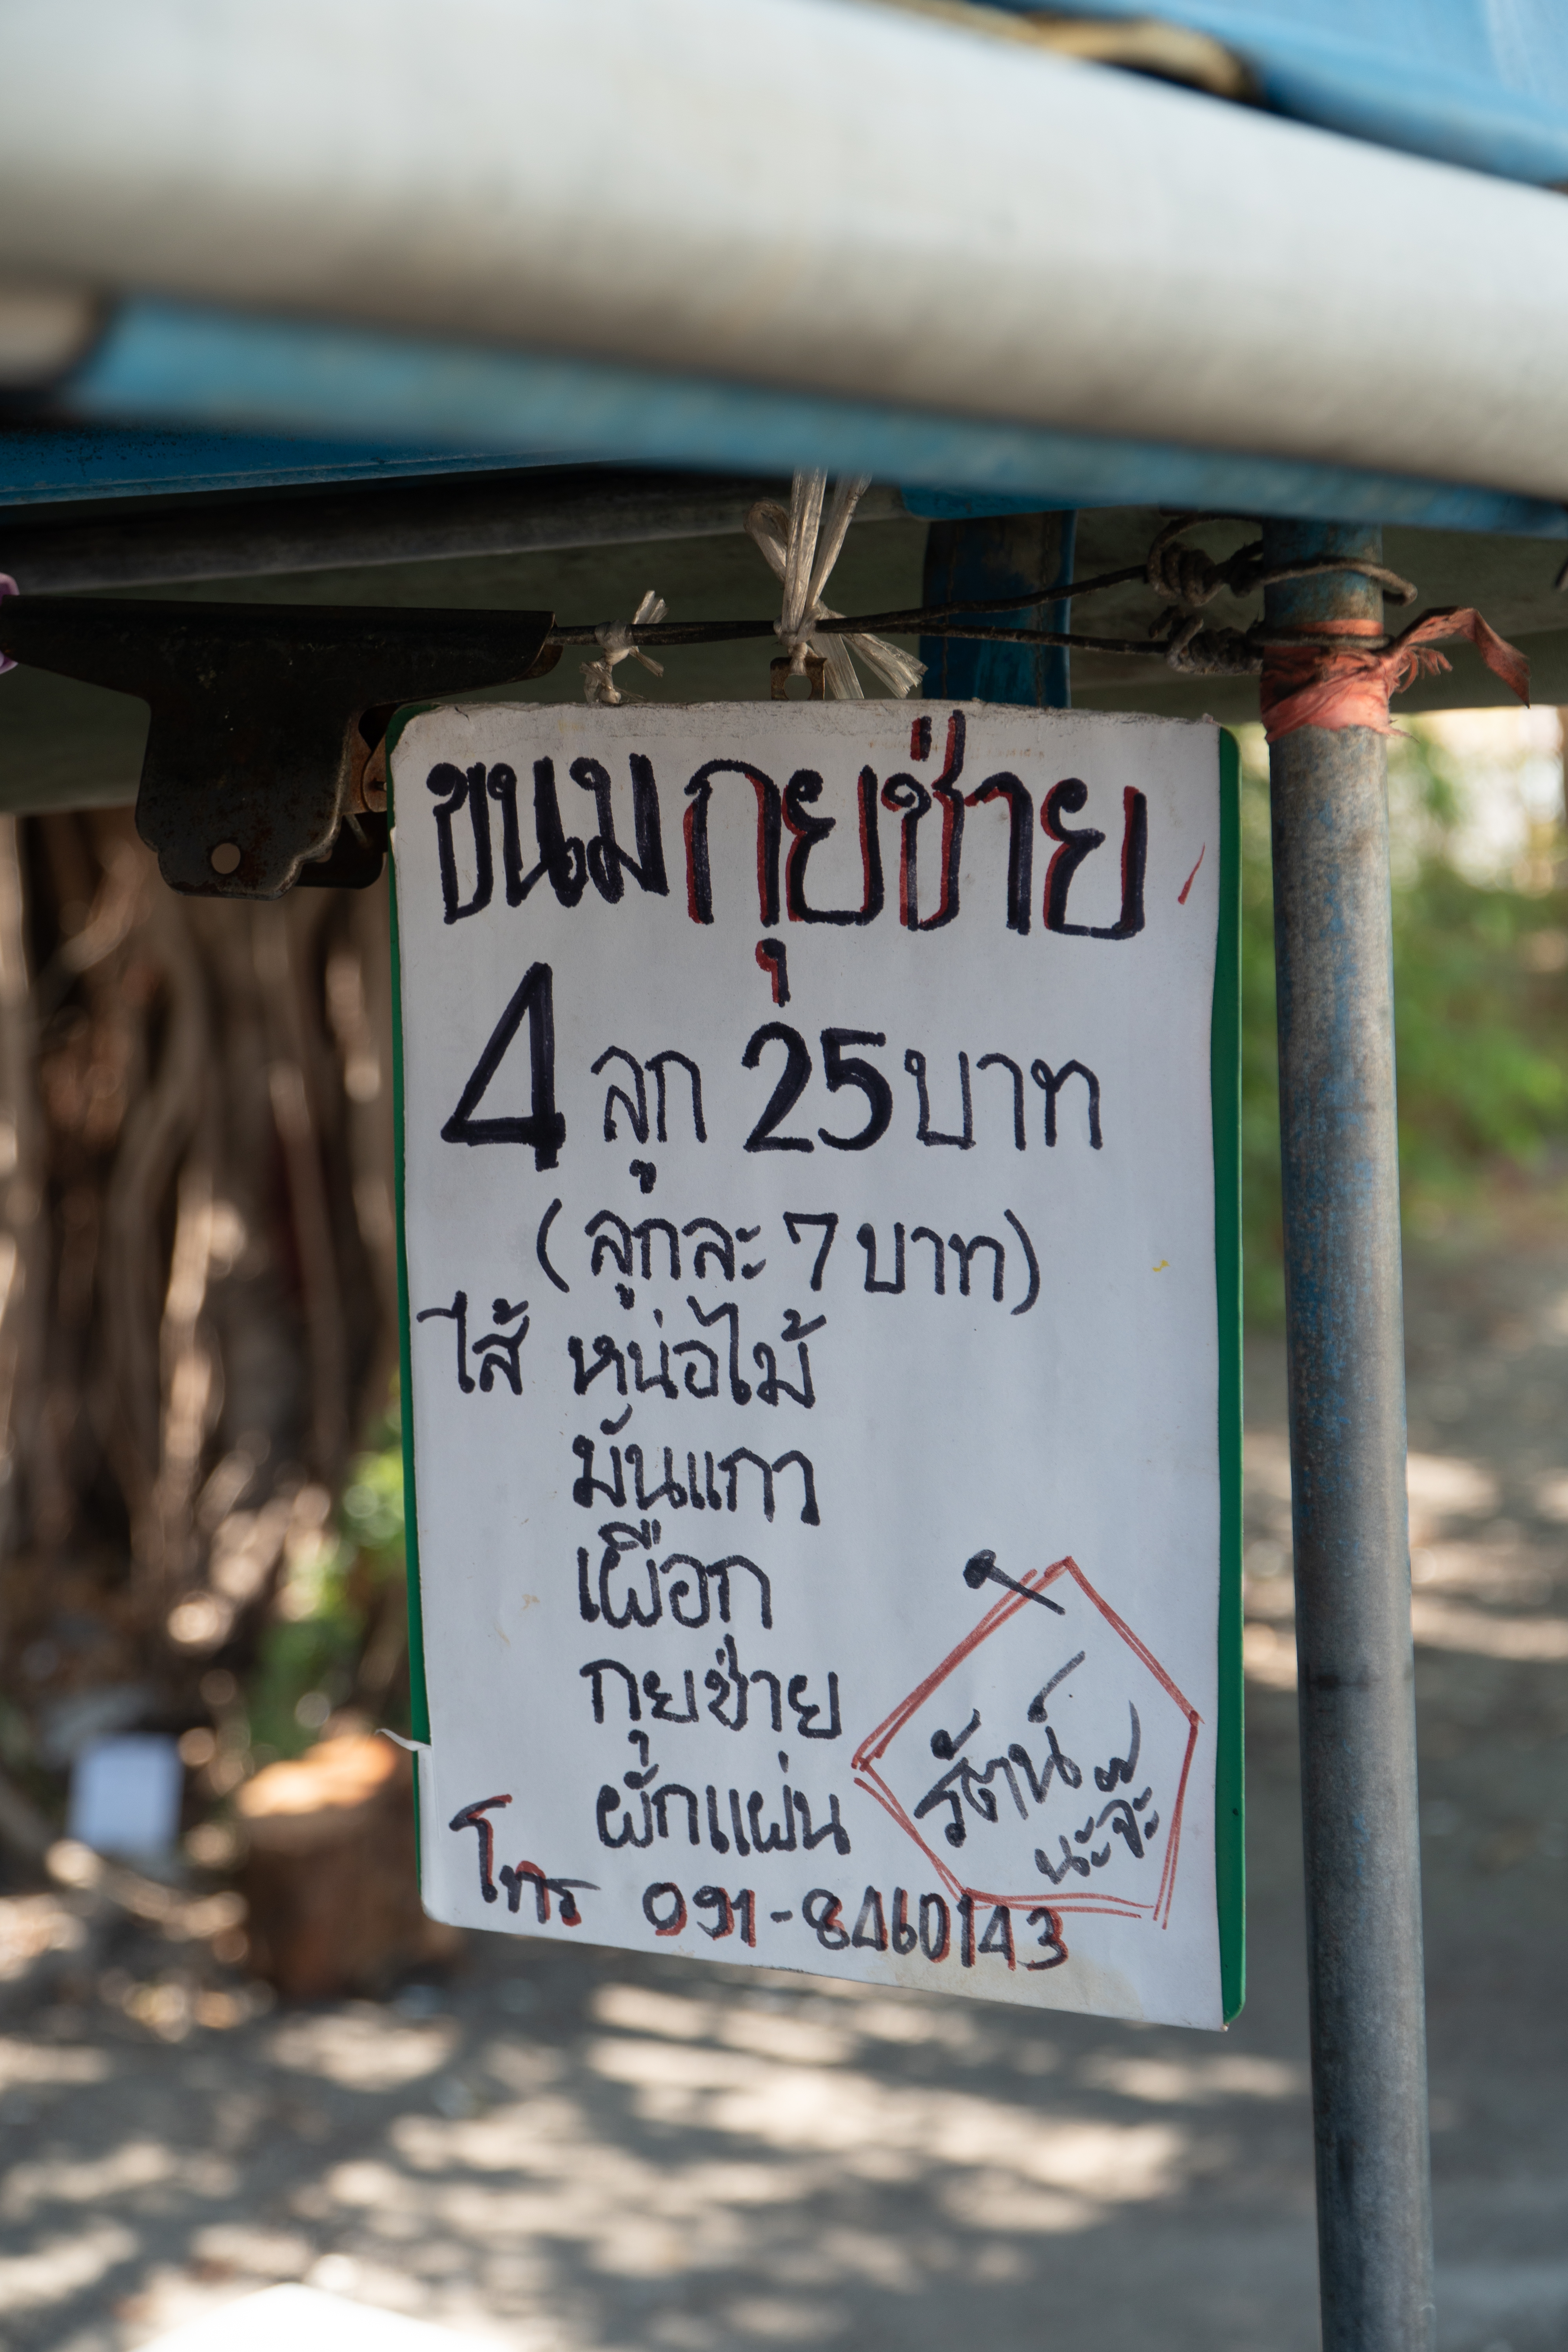 ขนมกุยช่าย
4 ลูก 25 บาท
(ลูกละ 7 บาท)
ไส้ หน่อไม้
มันแกว
เผือก
กุยช่าย
ผักแผ่น
รัตน์ๆ
นะจ๊ะ
โทร 091-8460143